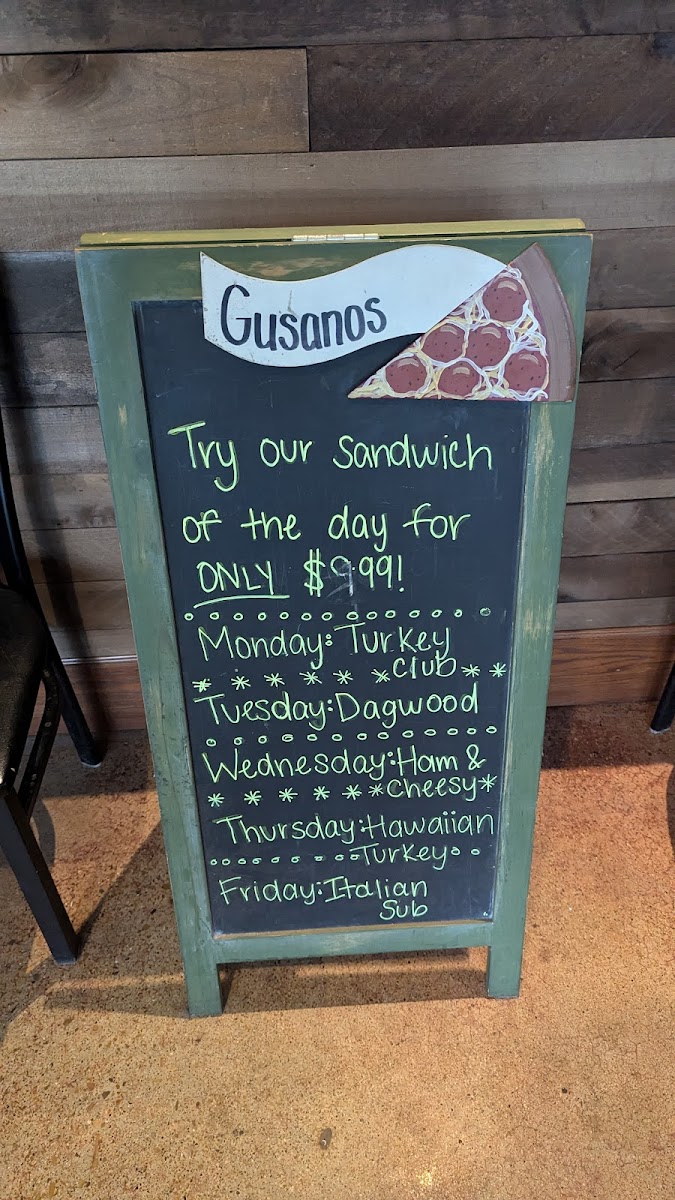 Gusanos
Try our sandwich
of the day for
ONLY $9.99!
Monday: Turkey
Club
Tuesday: Dagwood
Wednesday: Ham &
Cheesy
Thursday: Hawaiian
Turkey
Friday: Italian
Sub